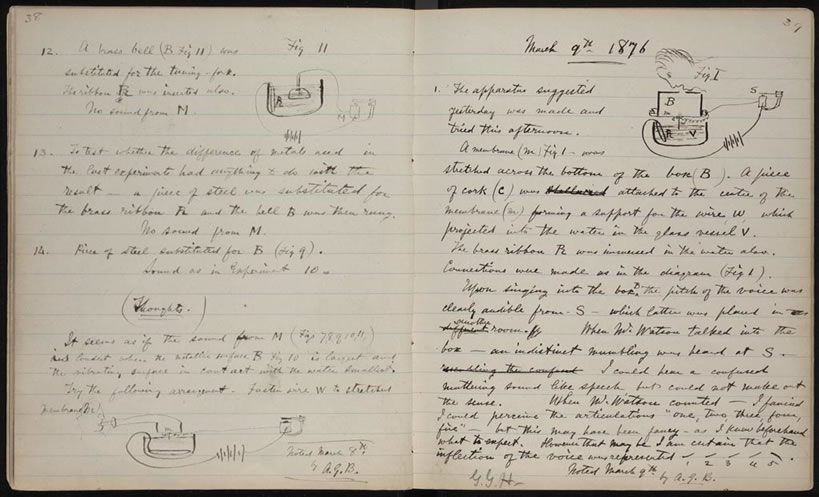 38
12. A brass bell (B Fig 11) was
substituted for the tuning-fork.
The ribbon R was inserted also.
No sound from M.
Fig 11
R
M
13. To test whether the difference of metals used in
the last experiments had anything to do with the
result — a piece of steel was substituted for
the brass ribbon R and the bell B was then rung.
No sound from M.
14. Piece of steel substituted for B (Fig 9).
Sound as in Experiment 10.
(Thoughts.)
It seems as if the sound from M (Figs 7 8 9 10, 11)
where the metallic surface B Fig 10 is largest and
the vibrating surface in contact with the water smallest.
Try the following arrangement. Fasten wire W to stretched
membrane
Noted March 8th
by A.G.B.
39
March 9th 1876
Fig 1
B
S
m
R V
1. The apparatus suggested
yesterday was made and
tried this afternoon.
A membrane (m) Fig 1 — was
stretched across the bottom of the box (B). A piece
of cork (C) was attached to the centre of the
membrane (m) forming a support for the wire W which
projected into the water in the glass vessel V.
The brass ribbon R was immersed in the water also.
Connections were made as in the diagram (Fig 1).
Upon singing into the box, the pitch of the voice was
clearly audible from S — which latter was placed in
different another room. When Mr. Watson talked into the
box — an indistinct mumbling was heard at S.
resembling the confused I could hear a confused
muttering sound like speech but could not make out
the sense. When Mr. Watson counted — I fancied
I could perceive the articulations "one, two, three, four,
five" — but this may have been fancy — as I knew beforehand
what to expect. However that may be I am certain that the
inflection of the voice was represented 1 2 3 4 5.
Noted March 9th
by A.G.B.
G.G.H.